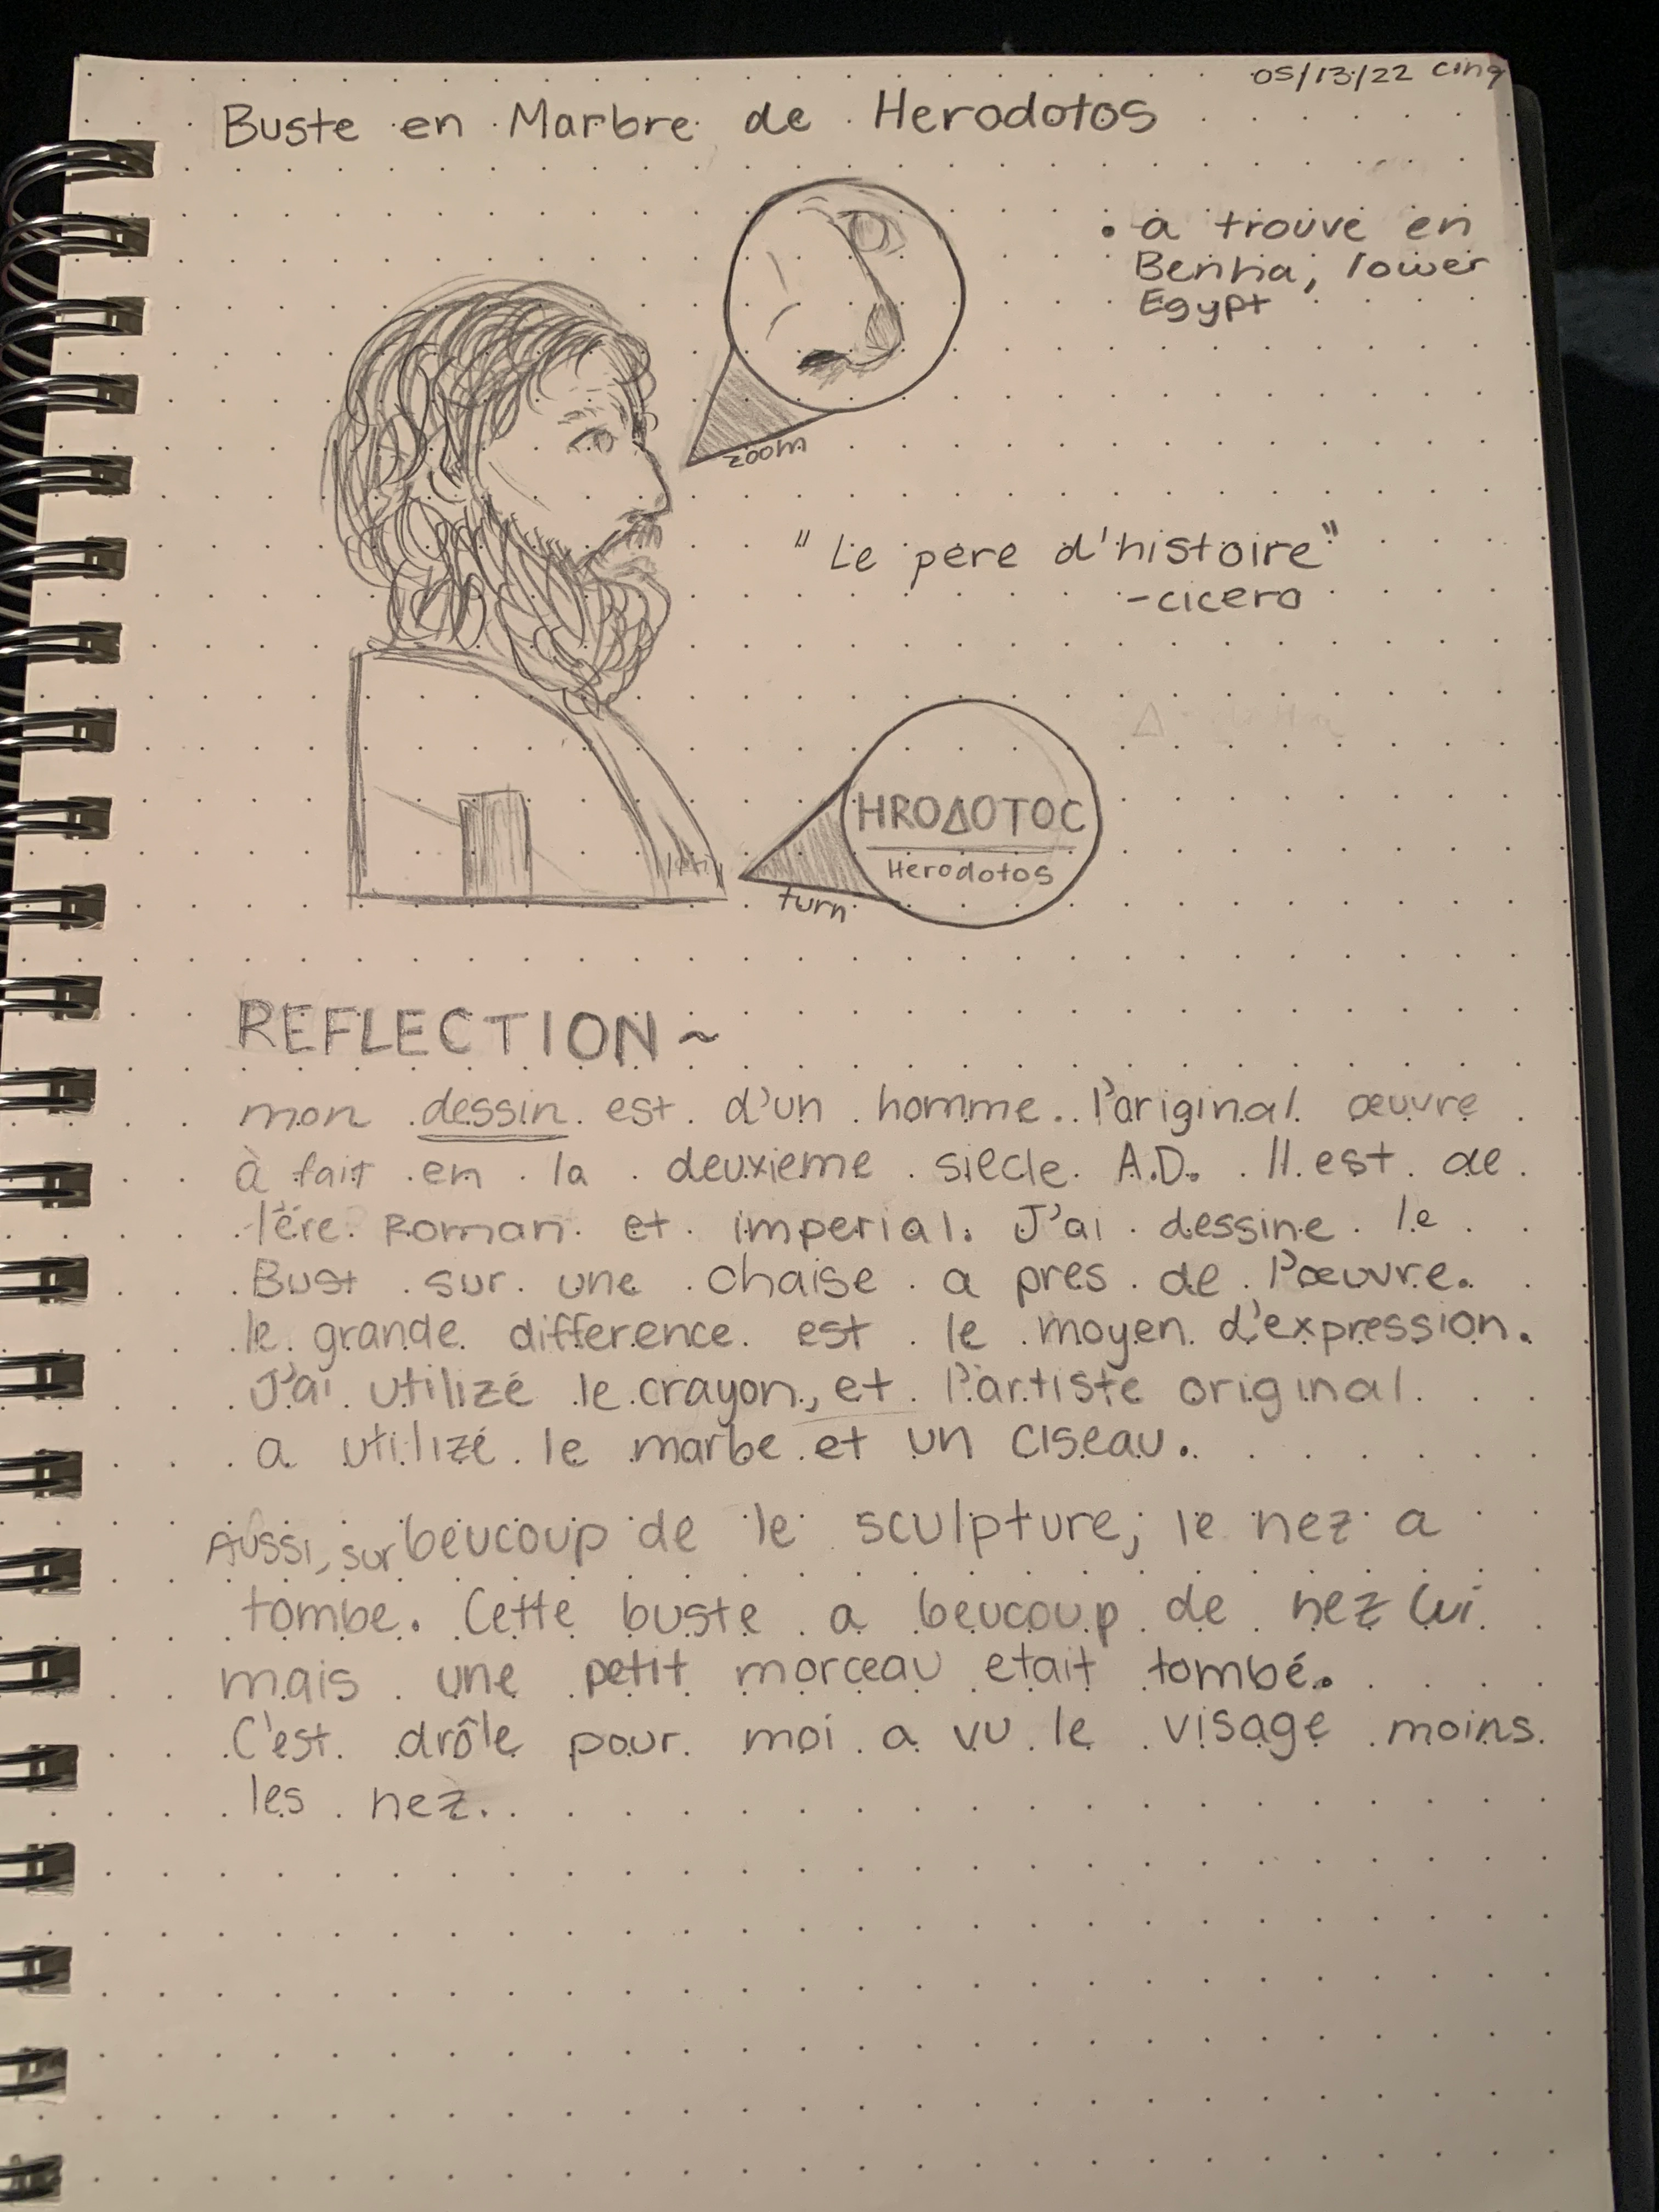 05/13/22 cinq
Buste en Marbre de Herodotos
• a trouvé en
Benha, lower
Egypt
zoom
"Le pere d'histoire"
-cicero
HROΔOTOC
Herodotos
turn
REFLECTION~
mon dessin est d'un homme. l'original œuvre
à fait en la deuxieme siecle A.D. Il est de
l'ére Roman et imperial. J'ai dessine le
Bust sur une chaise a pres de l'œuvre.
le grande difference est le moyen d'expression.
J'ai utilizé le crayon, et l'artiste original
a utilizé le marbe et un ciseau.
Aussi, sur beucoup de le sculpture, le nez a
tombe. Cette buste a beucoup de nez lui
mais une petit morceau etait tombé.
C'est drôle pour moi a vu le visage moins
les nez.